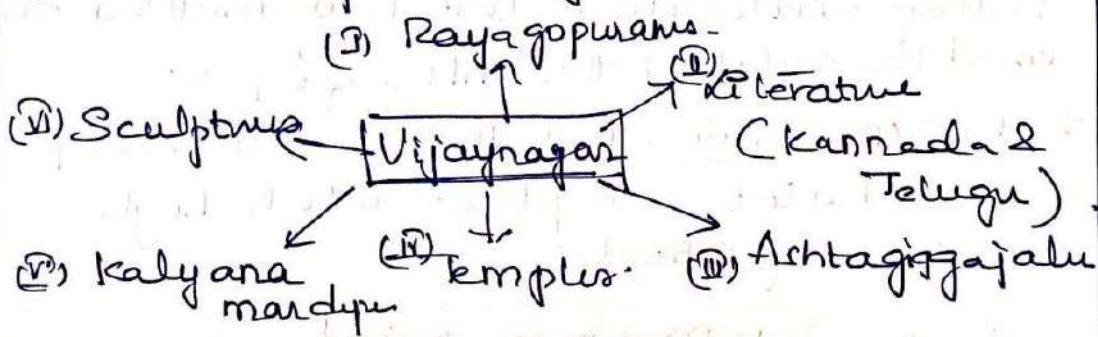 (I) Rayagopurams.
(II) Literature
(Kannada &
Telugu)
(VI) Sculptures
Vijaynagar
(V) Kalyana
mandapa
(IV) Temples.
(III) Ashtadiggajalu